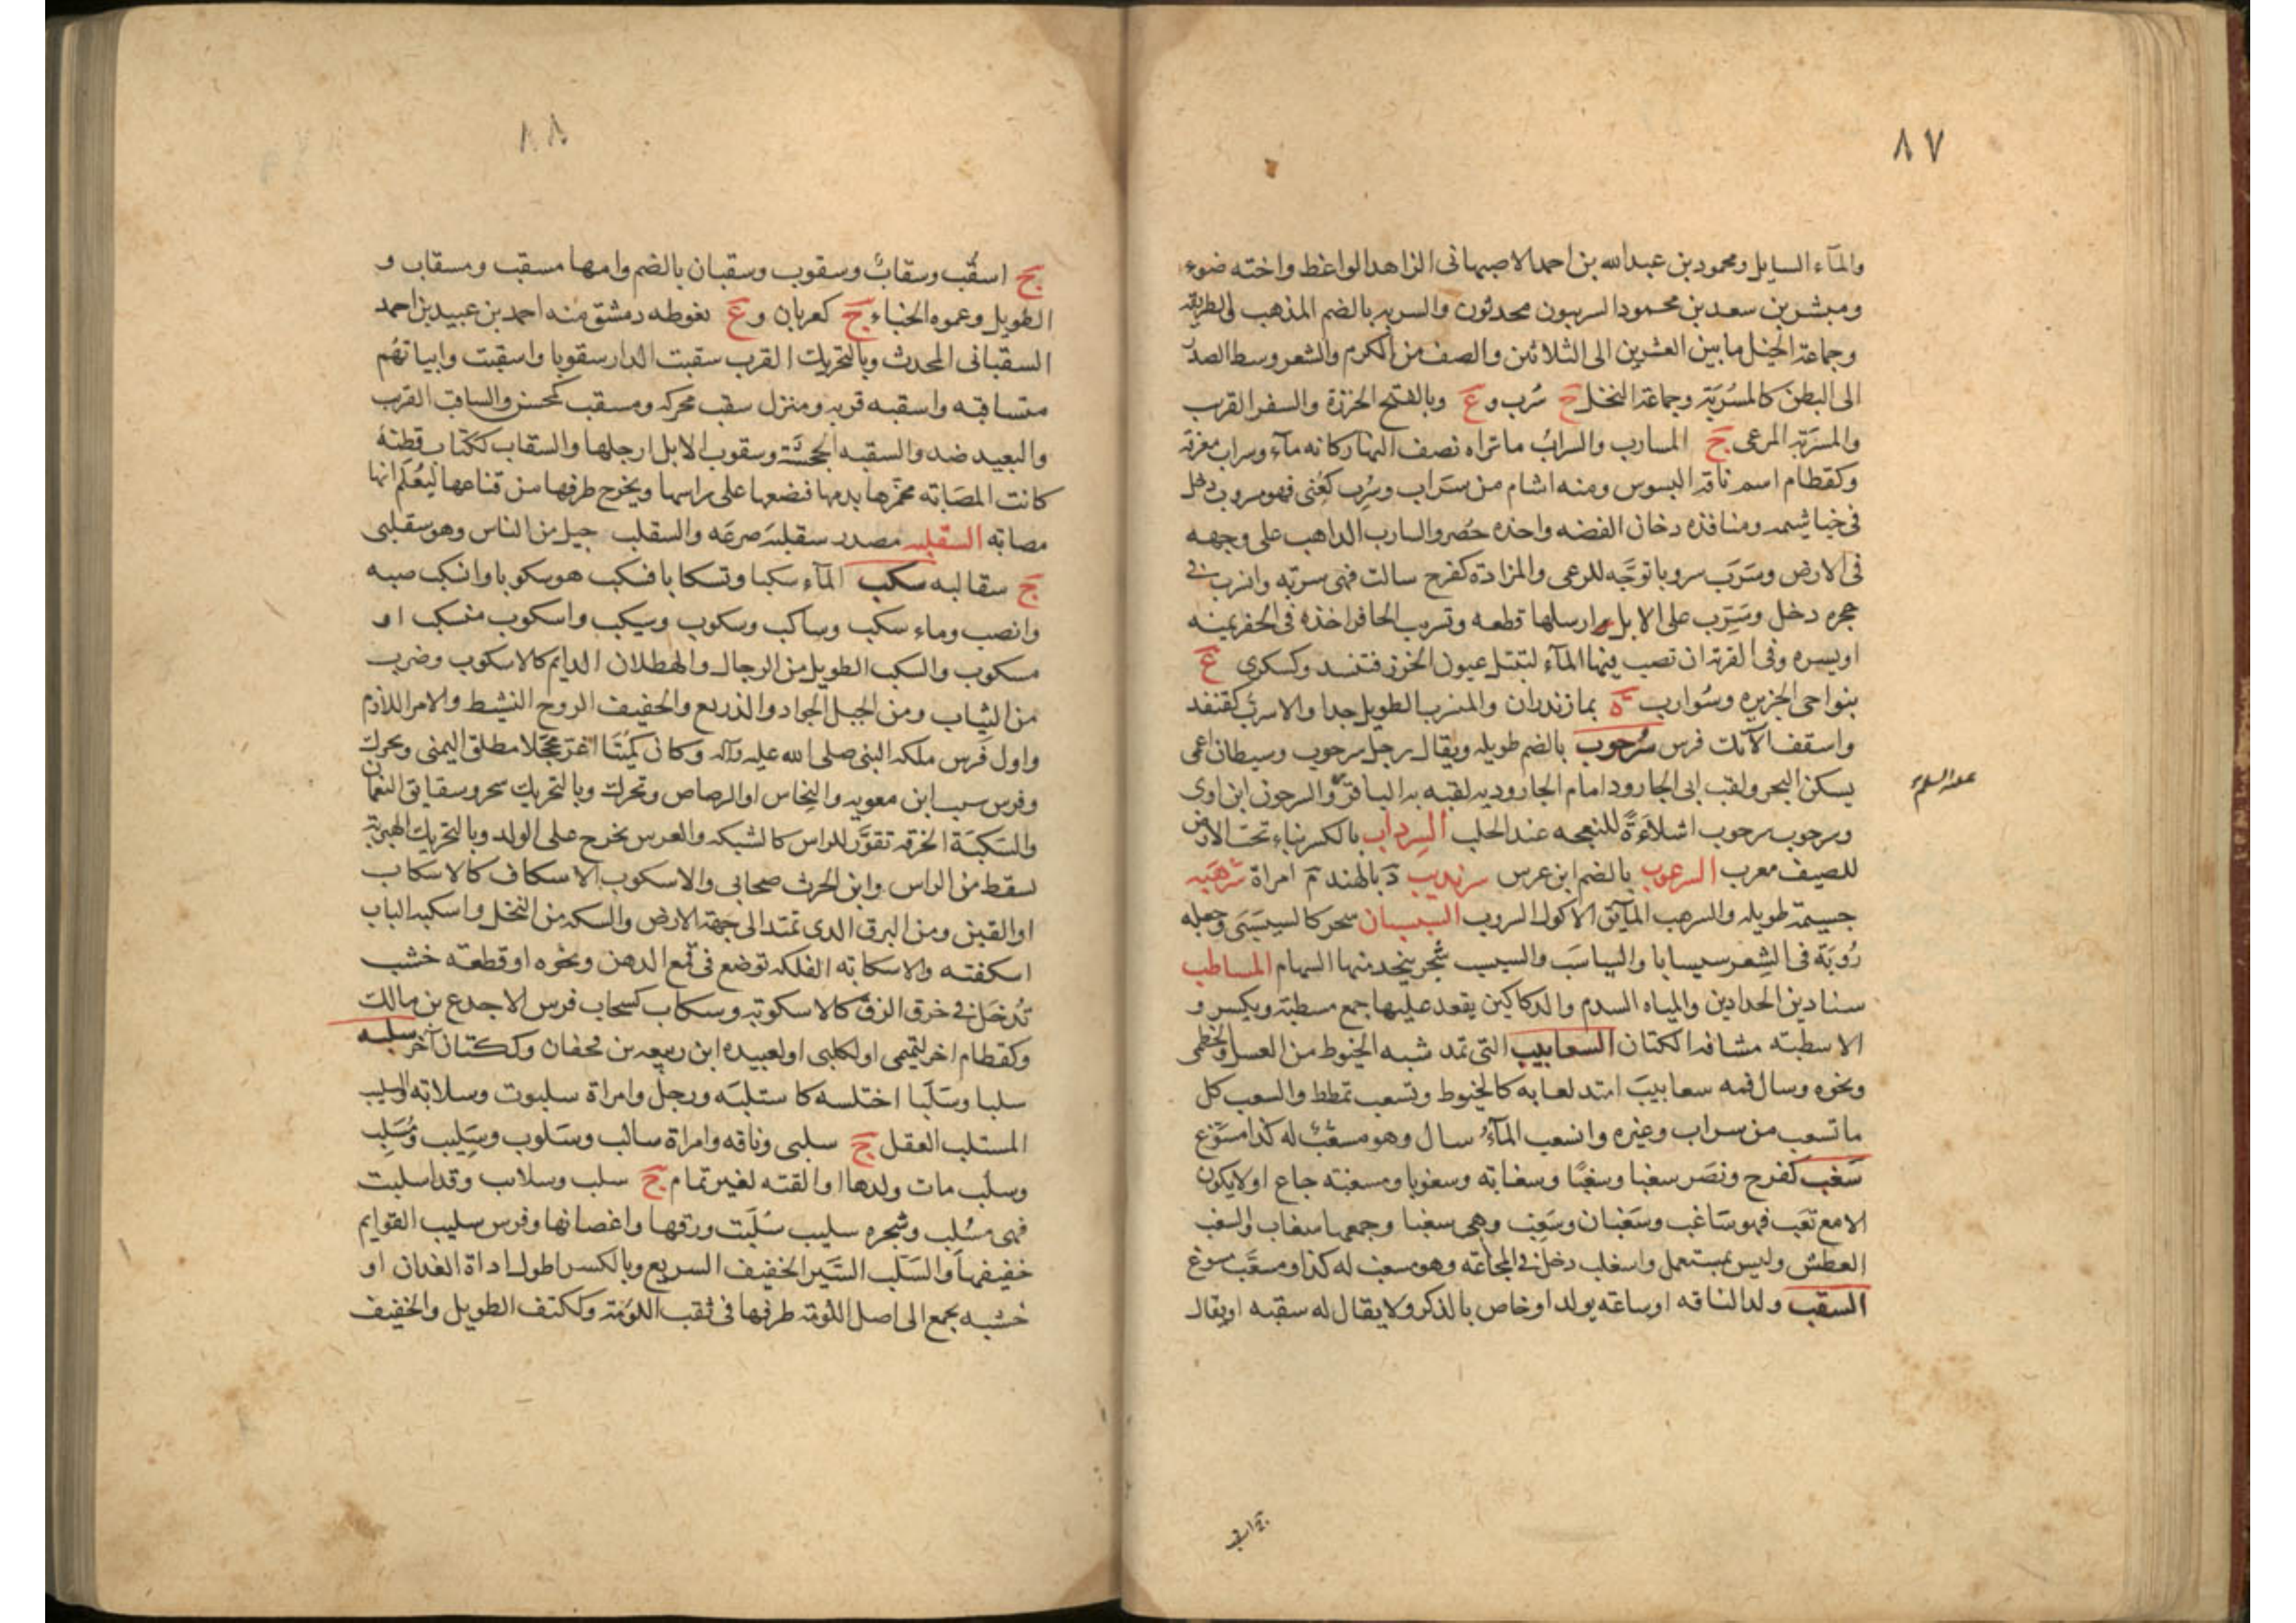 ٨٧
والمآء السايل ومحمود بن عبدالله بن احمد الاصبهانى الزاهد الواعظ واخته ضوء
ومبشر بن سعد بن محمود السربيون محدثون والسربه بالضم المذهب والطريقة
وجماعة الخيل ما بين العشرين الى الثلاثين والصف من الكرم والشعر وسط الصدر
الى البطن كالمسربة وجماعة النخل ج سرب و ع وبالفتح الخرزة والسفر القرب
والمسربة المرعى ج المسارب والسراب ماتراه نصف النهار كانه مآء وسراب معرفة
وكقطام اسم ناقة البسوس ومنه اشام من سراب وسرب كعنى فهو مسروب دخل
فى خياشيمه ومنافذه دخان الفضه واخذه حصر والسارب الذاهب على وجهه
فى الارض وسرب سروبا توجه للرعى والمزادة كفرح سالت فهى سربه وانسرب فى
جحره دخل وسرب على الابل ارسلها قطعه وتسريب الحافر اخذه فى الحفر يمينه
او يسره وفى القربة ان تصب فيها المآء لتبتل عيون الخرز فتنسد وكسكرى ع
بنواحى الجزيره وسوارب ة بمازندران والمنسرب الطويل جدا والاسرب كقنفذ
واسقف الآنك فرس سرحوب بالضم طويله ويقال رجل سرحوب وسيطان اعمى
يسكن البحر ولقب ابى الجارود امام الجاروديه لقبه به الباقر والسرحوب ابن اوى
عليه السلام
وسرحوب سرحوب اشلاءة للنعجه عند الحلب السرداب بالكسر بناء تحت الارض
للصيف معرب السرعوب بالضم ابن عرس سرنديب د بالهند م امراة سرهبه
جسيمة طويله والسرهب المائق الاكول الشروب السيسبان شجر كالسيسبى وجعله
رؤبة فى الشعر سيسابا والسياسب والسيسب شجر يتخذ منها السهام المساطب
سنادين الحدادين والمياه السدم والدكاكين يقعد عليها جمع مسطبة ويكسر و
الاسطبه مشاقه الكتان السعابيب التى تمد شبه الخيوط من العسل والخطمى
ونحوه وسال فمه سعابيب امتد لعابه كالخيوط وتسعب تمطط والسعب كل
ما تسعب من سراب وغيره وانسعب المآء سال وهو مسعب له كذا مسوغ
سغب كفرح ونصر سغبا وسغبا وسغابه وسغوبا ومسغبه جاع او لايكون
الا مع تعب فهو ساغب وسغبان وسغب وهى سغبا وجمعها سغاب والسغب
العطش وليس بمستعمل واسغب دخل فى المجاعه وهو مسغب له كذا ومسغب مسوغ
السقب ولد الناقه او ساعه يولد او خاص بالذكر ولا يقال له سقبه او يقال
ج اسقب
٨٨
ج اسقب وسقاب وسقوب وسقبان بالضم وامها مسقب ومسقاب و
الطويل وعموه الخباء ج كعربان و ع بغوطه دمشق منه احمد بن عبيد بن احمد
السقبانى المحدث وبالتحريك القرب سقبت الدار سقوبا واسقبت وابياتهم
متساقبه واسقبه قربه ومنزل سقب محركه ومسقب كمحسن والساقب القرب
والبعيد ضد والسقبه الجحشة وسقوب الابل ارجلها والسقاب ككتاب قطنة
كانت المصابه تحمرها بدمها فتضعها على راسها ويخرج طرفها من قناعها ليعلم انها
مصابه السقلبه مصدر سقلبه صرعه والسقلب جيل من الناس وهو سقلبى
ج سقالبه سكب المآء سكبا وتسكابا فسكب هو سكوبا وانسكب صبه
وانصب وماء سكب وساكب وسكوب وسيكب واسكوب منسكب او
مسكوب والسكب الطويل من الرجال والهطلان الدايم كالاسكوب وضرب
من الثياب ومن الخيل الجواد والذريع والخفيف الروح النشيط والامر اللازم
واول فرس ملكه النبى صلى الله عليه وآله وكان كميتا اغر محجلا مطلق اليمنى ويحرك
وفرس شبيب ابن معويه والنحاس او الرصاص وتحرك وبالتحريك شجر وشقايق النعمان
والسكبة الخرقه تقور للراس كالشبكه والعرس يخرج على الولد وبالتحريك الهبرية
تسقط من الراس وابن الحرث صحابى والاسكوب الاسكاف كالاسكاب
او القين ومن البرق الذى تمتد الى جهة الارض والسكه من النخل واسكبه الباب
اسكفته والاسكابه الفلكه توضع فى قمع الدهن ونحوه او قطعة خشب
تدخل فى خرق الزق كالاسكوبه وسكاب كسحاب فرس الاجدع بن مالك
وكقطام اخر لتميمى او لكلبى او لعبيده ابن ربيعه بن قحفان وككتان آخر سلبه
سلبا وسلبا اختلسه كاستلبه ورجل وامراة سلبوت وسلابه والسليب
المستلب العقل ج سلبى وناقه وامراة سالب وسلوب وسليب ومسلب
وسلب مات ولدها او القته لغير تمام ج سلب وسلائب وقد اسلبت
فهى مسلب وشجره سليب سلبت ورقها واغصانها وفرس سليب القوايم
خفيفها والسلب السير الخفيف السريع وبالكسر اطول اداة الفدان او
خشبه تجمع الى اصل اللؤمة طرفها فى ثقب اللؤمة وككتف الطويل والخفيف